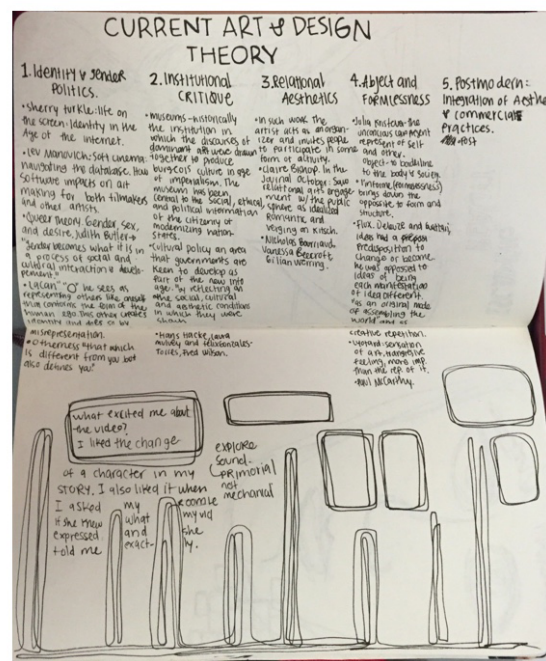 CURRENT ART & DESIGN
THEORY
1. Identity & Gender
Politics.
•Sherry turkle: life on
the screen: Identity in the
Age of the internet.
•Lev Manovich: Soft cinema,
navigating the database. How
Software impacts on art
making for both filmakers
and other artists.
•Queer theory. Gender, sex,
and desire, Judith Butler→
"gender becomes what it is in
a process of social and
cultural interaction & develo-
pement."
•Lacan→ "O" he sees as
representing others like
that contains the form of the
human ego. This other creates
identity and
misrepresentation.
•Otherness "that which
is different from you but
also defines you"
2. Institutional
CRITIQUE
•museums-historically
the institution in
which the discourses of
dominant art were drawn
together to produce
burgeois culture in age
of imperialism. The
museum has been
central to the social, ethical,
and political
of the citizenry of
modernizing nation-
states.
•Cultural policy an area
that governments are
keen to develop as
part of the new info
age. "by reflecting on
the social, cultural
and aesthetic conditions
in which they were
•Hans Hacke, Laura
mulvey and
Torres, Fred Wilson.
3. Relational
Aesthetics
•In such work the
artist acts as an organ-
izer and invites people
to participate in some
form of activity.
•Claire Bishop. In the
Journal October: Says
relational art engage-
ment w/ the public
sphere as idealized
Romantic and
verging on Kitsch.
•Nicholas Bourriaud
Vanessa Beecroft
Gillian Wering.
4. Abject and
FORMLESSNESS
•Julia Kristeva- the
unconcious can present
represent of self
and other.
Object- to borderline
to the body & society.
•l'informe (formlessness)
brings down the
opposite to form and
structure.
•Flux. Deleuze and
ideas had a
Predisposition to
change or become
he was opposed to
ideas of being
each manifestation
of idea different
"as an original mode
of assembling the
world and
creative repetition.
•Lyotard: sensation
of art, transgressive
feeling, more imp.
than the rep. of it.
•Paul McCarthy.
5. Postmodern:
Integration of Aesthe
& commercial
practices.
•Post
what excited me about
the video?
I liked the change
of a character in my
STORY. I also liked it when
I asked my roomie
if she knew what my vid
expressed and she
told me exact- ly.
explore
sound-
primorial
not
mechanical